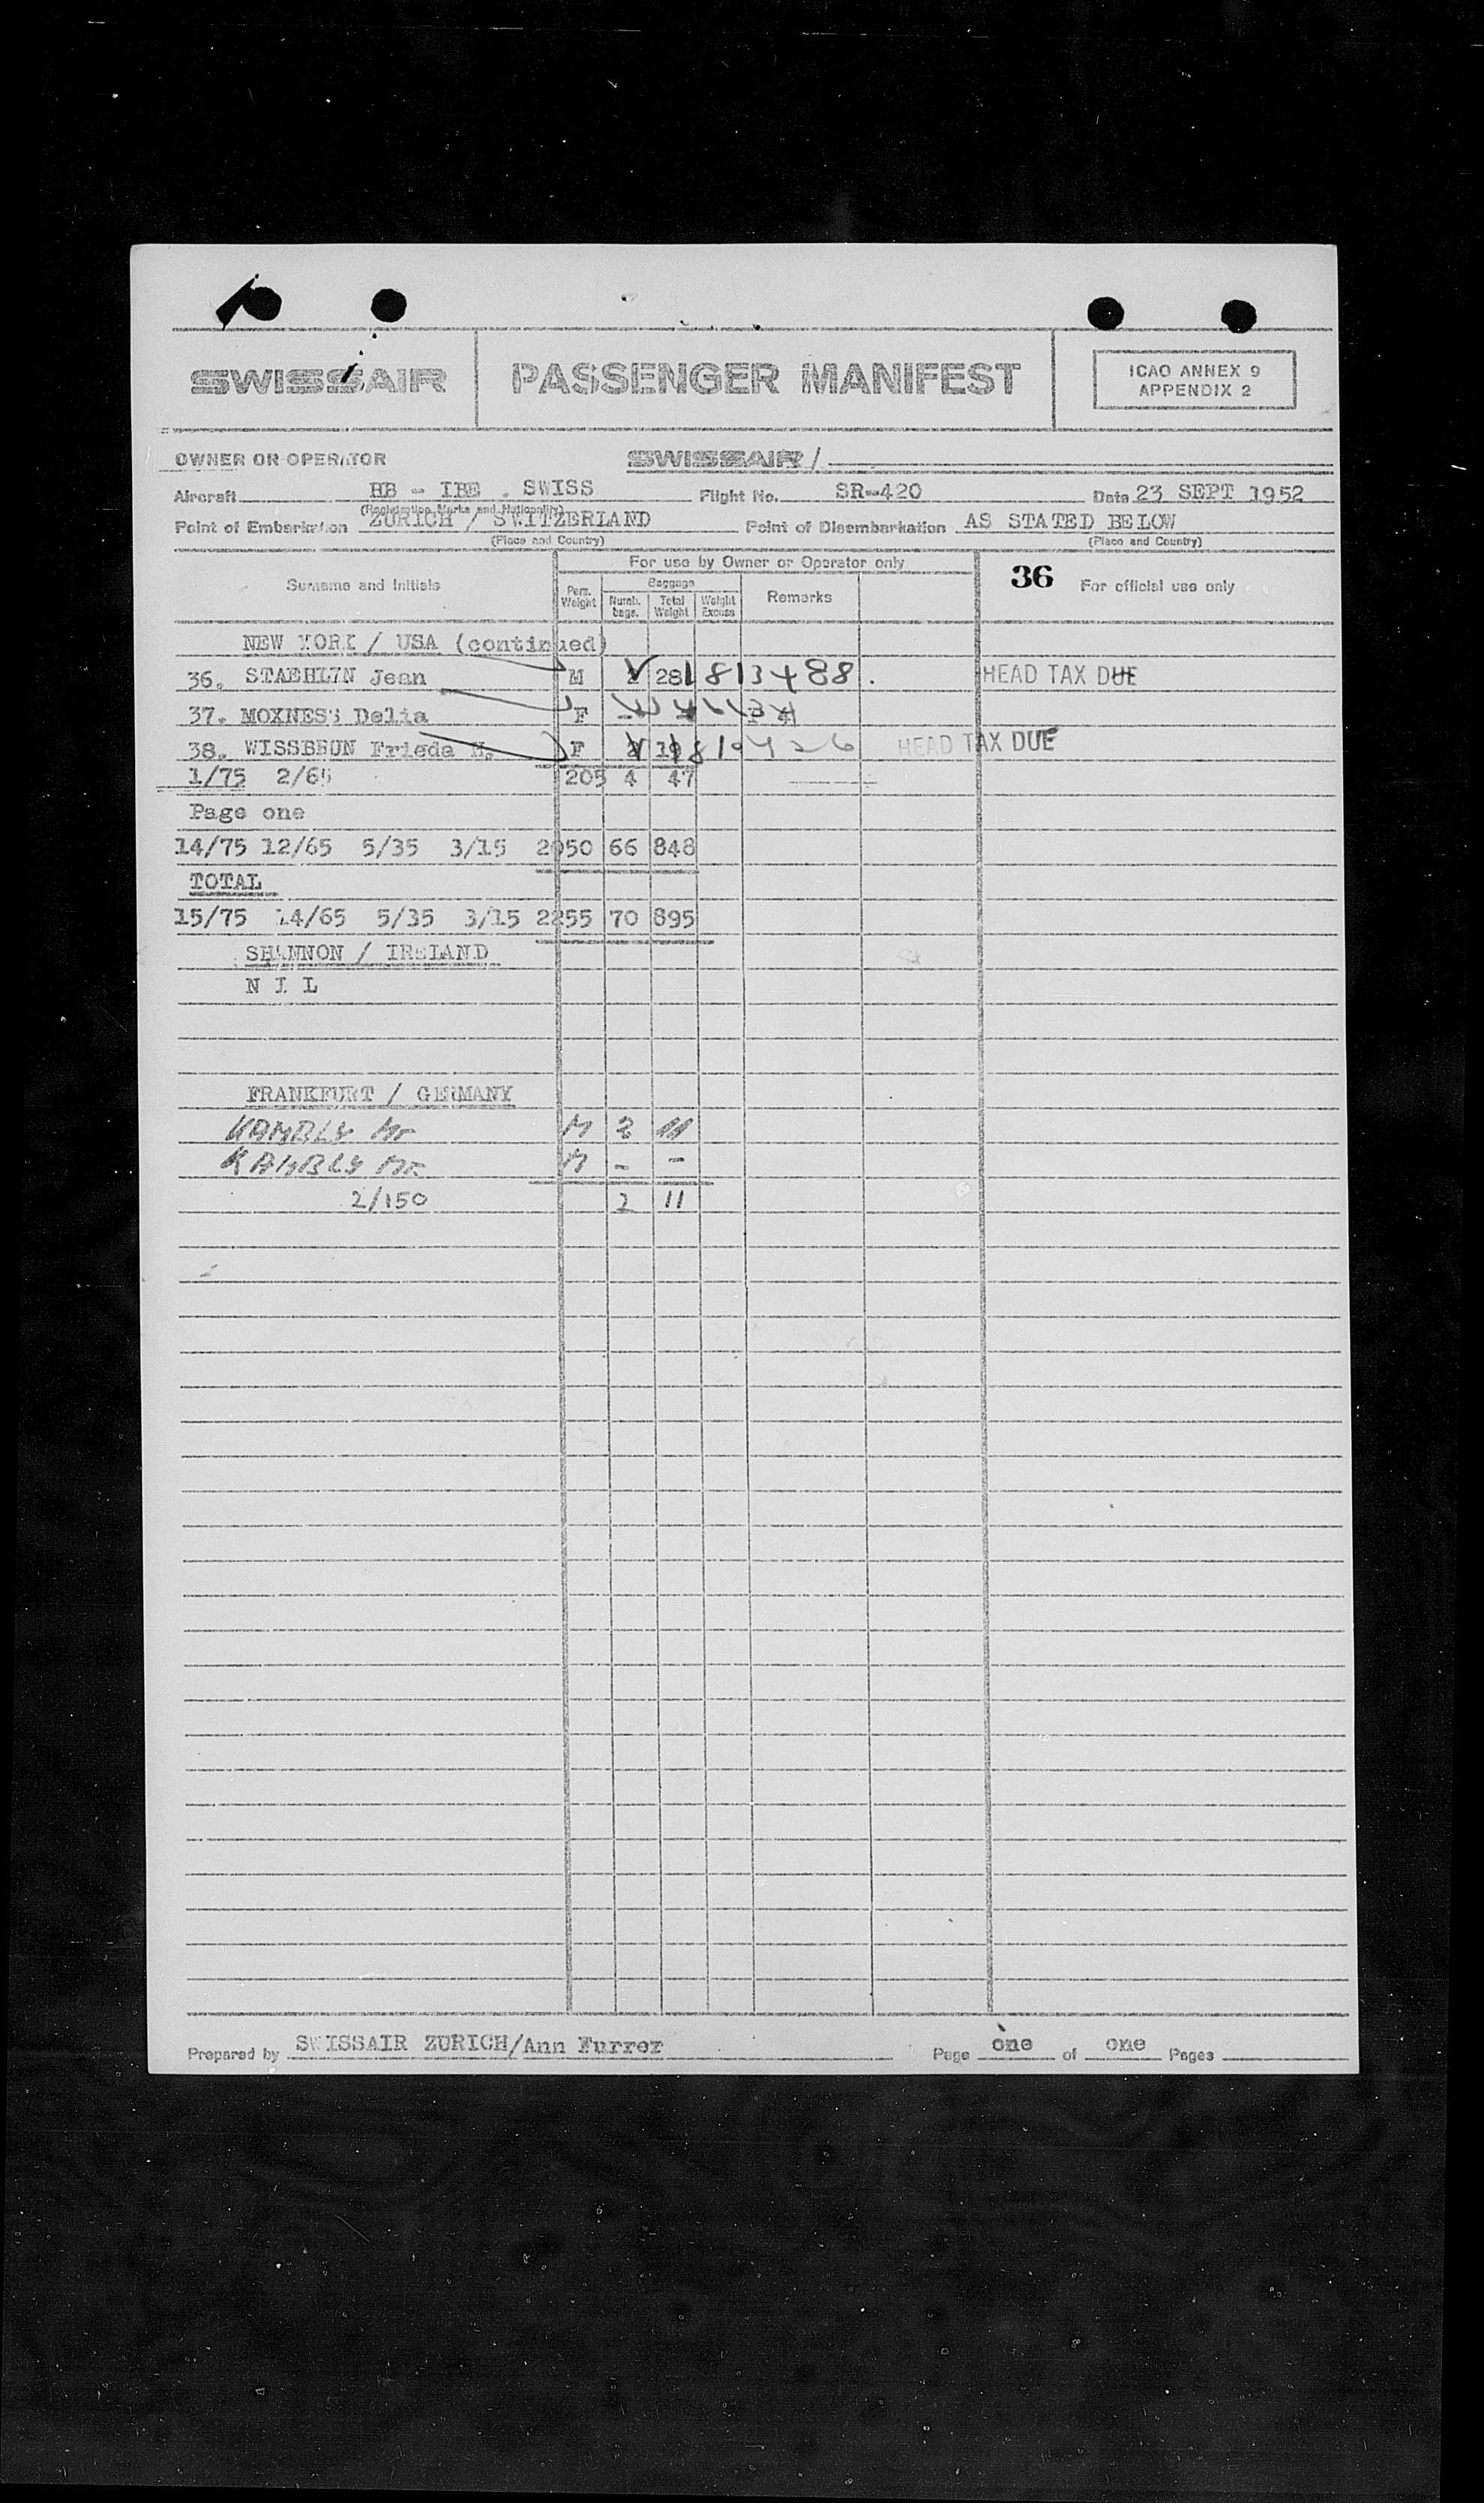 SWISSAIR PASSENGER MANIFEST ICAO ANNEX 9
APPENDIX 2
OWNER OR OPERATOR SWISSAIR /
Aircraft HB - IBE . SWISS Flight No. SR-420 Date 23 SEPT 1952
(Registration Marks and Nationality)
Point of Embarkation ZURICH / SWITZERLAND Point of Disembarkation AS STATED BELOW
(Place and Country) (Place and Country)
For use by Owner or Operator only
Surname and Initials Pers. Weight Baggage Numb. bags. Total Weight Weight Excess Remarks 36 For official use only
NEW YORK / USA (continued)
36. STAEHLIN Jean M 2 28 1813488. HEAD TAX DUE
37. MOXNESS Delia F
38. WISSBRUN Frieda F 2 19 HEAD TAX DUE
1/75 2/65 205 4 47
Page one
14/75 12/65 5/35 3/15 2050 66 848
TOTAL
15/75 14/65 5/35 3/15 2255 70 895
SHANNON / IRELAND
N I L
FRANKFURT / GERMANY
KAMBLY Mr M 2 11
KAMBLY Mr M - -
2/150 2 11
Prepared by SWISSAIR ZURICH/Ann Furrer Page one of one Pages